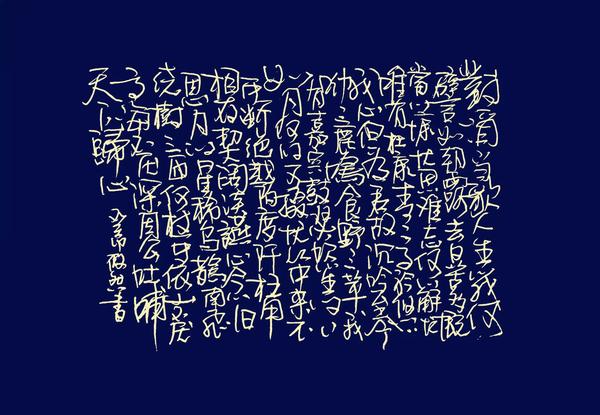 對酒當歌人生幾何
譬如朝露去日苦多慨
當以慷憂思難忘何以解憂
唯有杜康青青子衿悠悠
我心但為君故沉吟至今
呦呦鹿鳴食野之苹我
有嘉賓鼓瑟吹笙明明
如月何時可掇憂從中來不
可斷絕越陌度阡枉用
相存契闊談讌心念舊
恩月明星稀烏鵲南飛
繞樹三匝何枝可依山不厭
高海不厭深周公吐哺
天下歸心 書